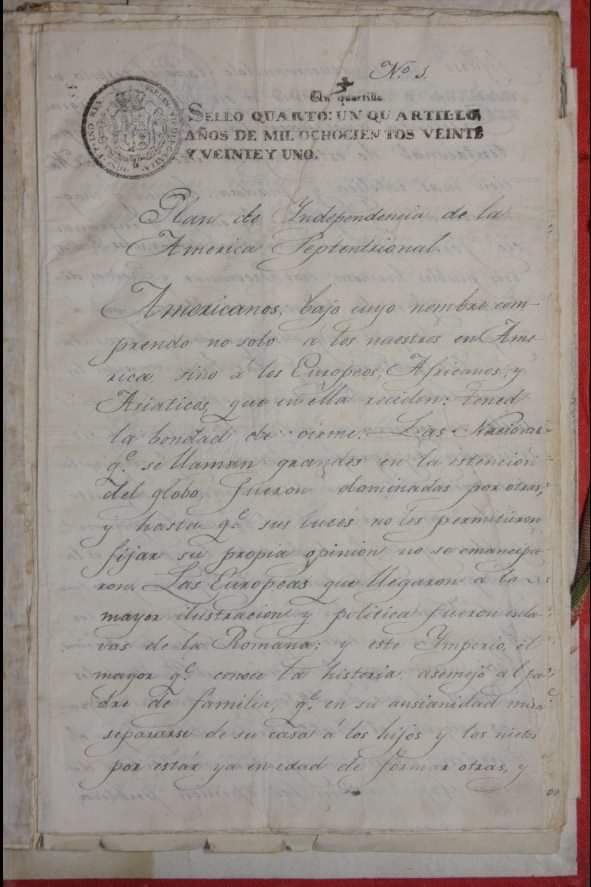 Nº. 1.
Un quartillo
SELLO QUARTO: UN QUARTILLO,
AÑOS DE MIL OCHOCIENTOS VEINTE
Y VEINTE Y UNO.
Plan de Independencia de la
America Septentrional.
Americanos, bajo cuyo nombre com-
prendo no solo á los nacidos en Ame-
rica, sino á los Europeos, Africanos, y
Asiaticos, que en ella reciden: tened
la bondad de oirme. Las Naciones
q.ᵉ se llaman grandes en la estencion
del globo, fueron dominadas por otras,
y hasta q.ᵉ sus luces no les permitieron
fijar su propia opinion no se emancipa-
ron. Las Europeas que llegaron á la
mayor ilustracion y politica fueron escla-
vas de la Romana; y este Ymperio, el
mayor q.ᵉ conoce la historia, asemejó al pa-
dre de familia, q.ᵉ en su ansianidad mira
separarse de su casa á los hijos y los nietos
por estár ya en edad de formar otras, y